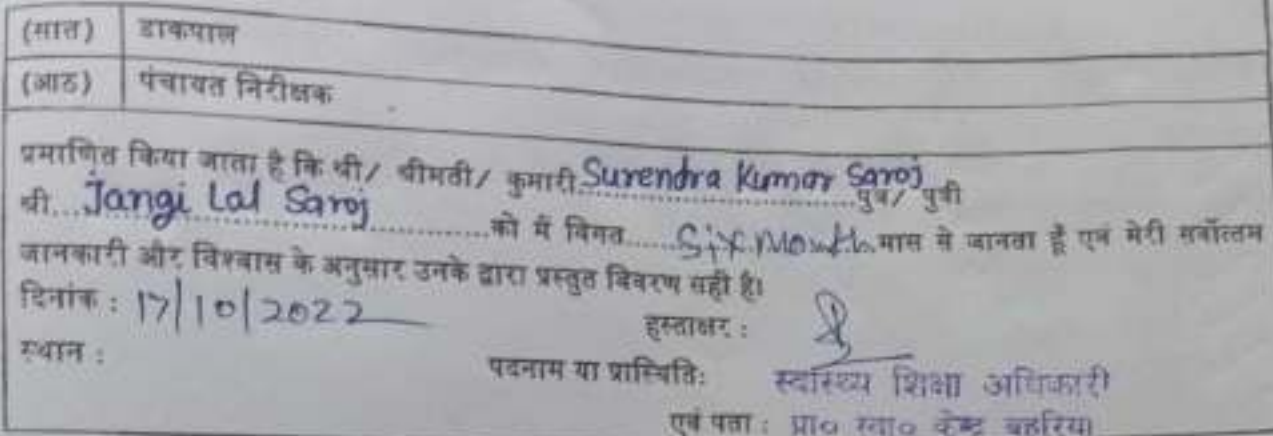 (सात) डाकपाल
(आठ) पंचायत निरीक्षक
प्रमाणित किया जाता है कि श्री/ श्रीमती/ कुमारी Surendra Kumar Saroj पुत्र/ पुत्री
श्री... Jangi Lal Saroj ..........को मैं विगत..... Six Month मास से जानता हूँ एवं मेरी सर्वोत्तम
जानकारी और विश्वास के अनुसार उनके द्वारा प्रस्तुत विवरण सही है।
दिनांक : 17/10/2022
हस्ताक्षर :
स्थान :
पदनाम या प्रास्थिति: स्वास्थ्य शिक्षा अधिकारी
एवं पता : प्रा० स्वा० केन्द्र बहरिया